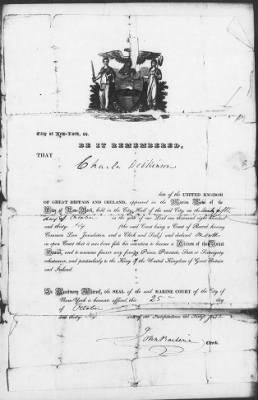 City of New-York, ss.
BE IT REMEMBERED,
THAT
Charles
late of the UNITED KINGDOM
OF GREAT BRITAIN AND IRELAND, appeared in the Marine Court of the
City of New-York, held in the City Hall of the said City, on the
day of October in the year of our Lord one thousand eight hundred
and thirty (the said Court being a Court of Record having
Common Law Jurisdiction and a Clerk and Seal,) and declared
in open Court that it was bona fide his intention to become a Citizen of the United
States, and to renounce forever any foreign Prince, Potentate, State or Sovereignty
whatsoever, and particularly to the King of the United Kingdom of Great Britain
and Ireland.
In Testimony Whereof, the SEAL of the said MARINE COURT of the City of
New-York is hereunto affixed this 25 day
of October
Independence
John Clerk.